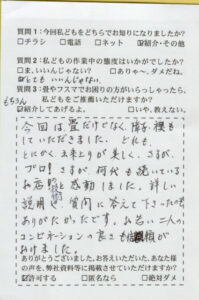 質問1:今回私どもをどちらでお知りになりましたか?
□チラシ □電話 □ネット ☑紹介・その他
質問2:私どもの作業中の態度はいかがでしたか?
□ま、いいんじゃない? □ありゃ~、ダメだね。
☑とても いいんじゃない!
質問3:畳やフスマでお困りの方がいらっしゃったら、
私どもをご推薦いただけますか?
もちろん
☑紹介してあげるよ。 □いや、教えない。
今回は、畳だけでなく、障子、襖も
していただきました。どれも、
とにかく、出来上りが美しく、さすが、
プロ! さすが 何代も続いている
お店!と感動しました。詳しい
説明、質問に答えて下さったのも
ありがたかったです。お若い二人の
コンビネーションの良さも
おけました。
ありがとうございました。お答えいただいた、あなた様
の声を、弊社資料等に掲載させていただけますか?
☑許可する □匿名なら □絶対ダメ